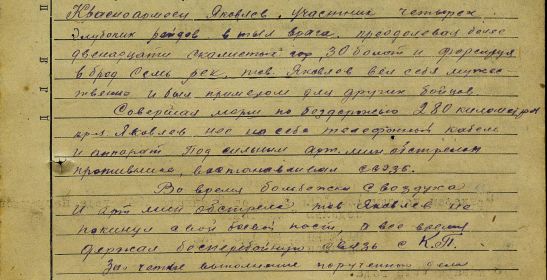 Красноармеец Яковлев, участник четырех
глубоких рейдов в тыл врага, преодолевая более
двенадцати скалистых гор, 30 болот и форсируя
в брод семь рек, тов. Яковлев вел себя мужес-
твенно и был примером для других бойцов.
Совершая марш по бездорожью 280 километров
кр-ц Яковлев нес на себе телефонный кабель
и аппарат. Под сильным арт. мин. обстрелом
противника, восстанавливал связь.
Во время бомбежки с воздуха
и арт. мин. обстрела тов. Яковлев не
покинул свой боевой пост, а все время
держал бесперебойную связь с К.П.
За четкое выполнение порученных дела